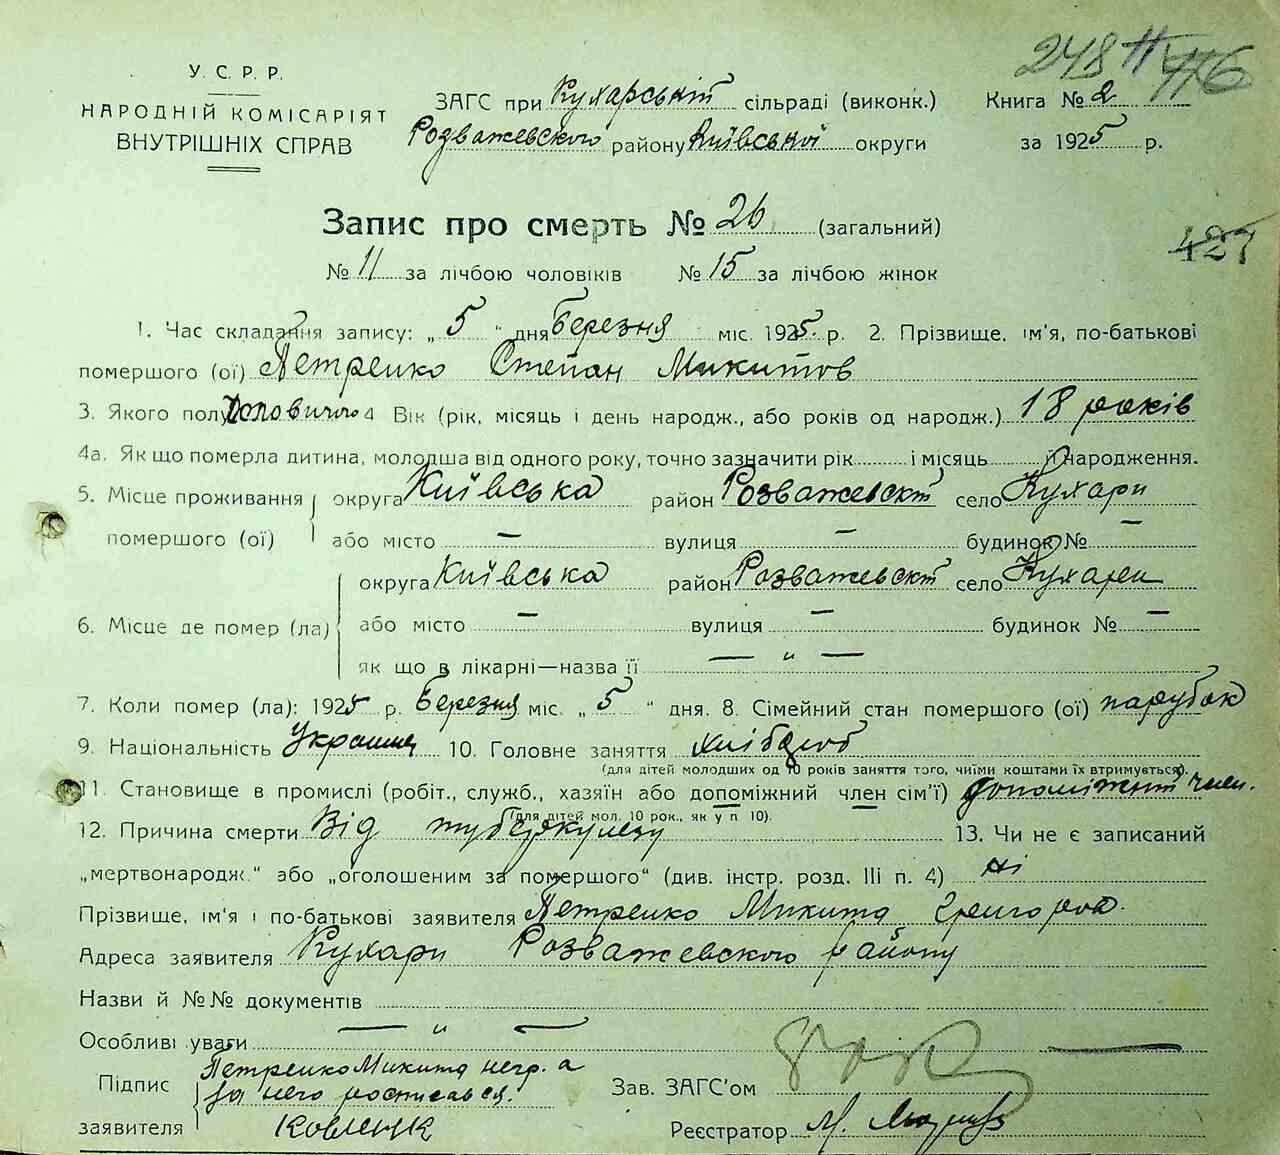 248
У. С. Р. Р.
НАРОДНІЙ КОМІСАРІЯТ
ВНУТРІШНІХ СПРАВ
ЗАГС при Кухарській сільраді (виконк.) Книга № 2
Розважевского району Київської округи за 1925 р.
Запис про смерть № 26 (загальний)
427
№ 11 за лічбою чоловіків № 15 за лічбою жінок
1. Час складання запису: „ 5 “ дня березня міс. 1925 р. 2. Прізвище, ім'я, по-батькові
помершого (ої) Петренко Степан Микитов
3. Якого полу Чоловичого 4 Вік (рік, місяць і день народж., або років од народж.) 18 років
4а. Як що померла дитина, молодша від одного року, точно зазначити рік і місяць її народження.
5. Місце проживання округа Київська район Розважевськ село Кухари
помершого (ої) або місто — вулиця — будинок № —
округа Київська район Розважевськ село Кухари
6. Місце де помер (ла) або місто — вулиця — будинок № —
як що в лікарні—назва її — „ —
7. Коли помер (ла): 1925 р. березня міс. „ 5 “ дня. 8. Сімейний стан помершого (ої) парубок
9. Національність 10. Головне заняття хлібороб
(для дітей молодших од 10 років заняття того, чиїми коштами їх втримується).
11. Становище в промислі (робіт., служб., хазяїн або допоміжний член сім'ї) допоміжний член.
(для дітей мол. 10 рок., як у п 10).
12. Причина смерти Від туберкулезу 13. Чи не є записаний
„мертвонародж.“ або „оголошеним за помершого“ (див. інстр. розд. III п. 4) ні
Прізвище, ім'я і по-батькові заявителя Петренко Микита Григоров
Адреса заявителя Кухари Розважевского району
Назви й №№ документів
Особливі уваги — „ —
Підпис Петренко Микита негр. а
за него росписался.
заявителя
Зав. ЗАГС'ом
Реєстратор М.